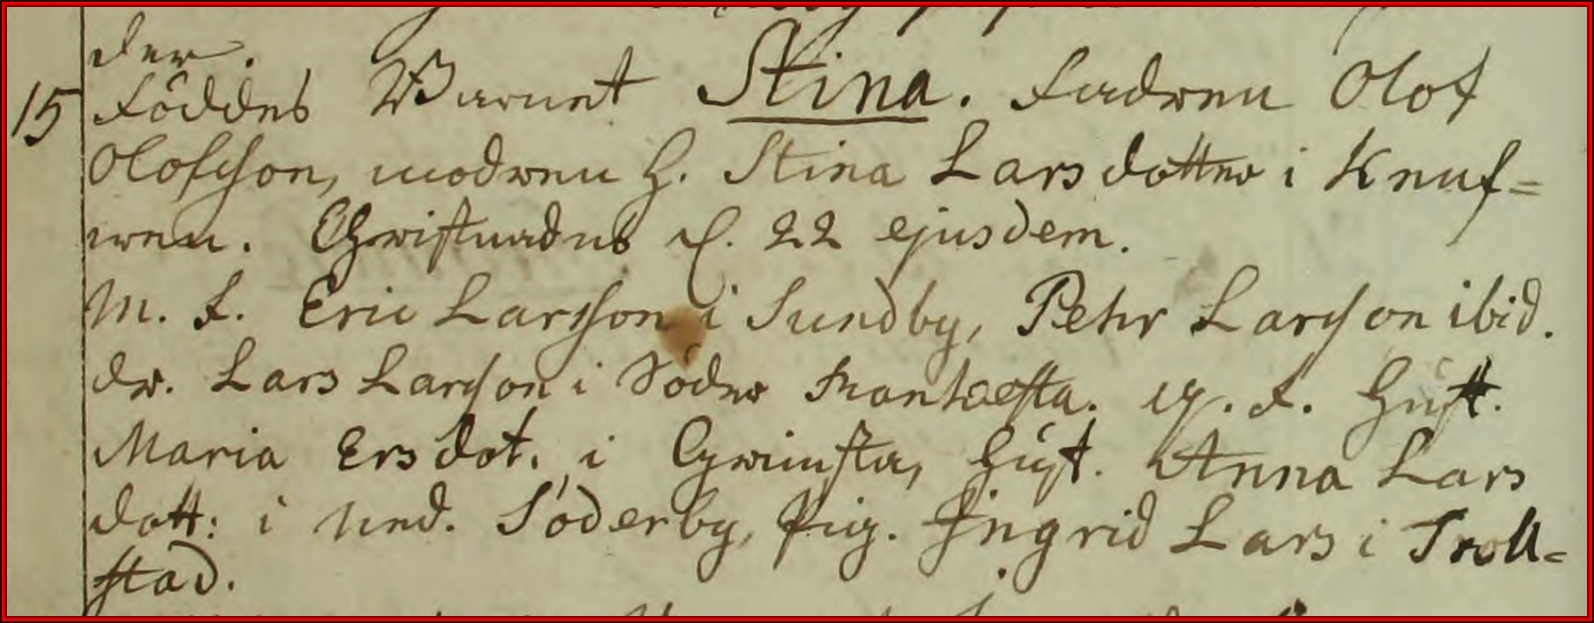 der.
15 Föddes Barnet Stina. Fadren Olof
Olofsson, modren H. Stina Larsdotter i Knuf=
wen. Christnades d. 22 ejusdem.
M. F. Eric Larsson i Sundby, Pehr Larsson ibid.
dr. Lars Larsson i Söder q. F. Hust.
Maria Ersdot. i Grimsta, Hust. Anna Lars
dott: i Ned. Söderby, Pig. Ingrid Lars i Troll=
stad.